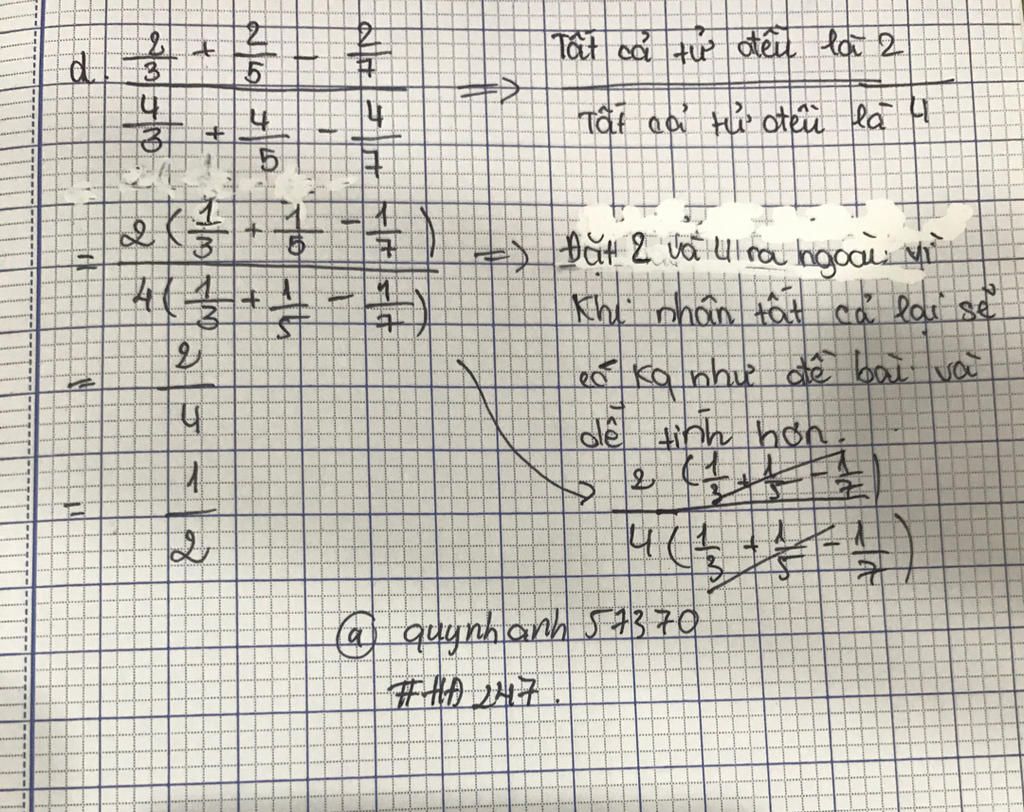 d. (2/3 + 2/5 - 2/7) / (4/3 + 4/5 - 4/7) => Tất cả tử đều là 2 / Tất cả tử đều là 4
= 2(1/3 + 1/5 - 1/7) / 4(1/3 + 1/5 - 1/7) => Đặt 2 và 4 ra ngoài vì
khi nhân tất cả lại sẽ
= 2/4
có kq như đề bài và
dễ tính hơn.
= 1/2
2(1/3 + 1/5 - 1/7) / 4(1/3 + 1/5 - 1/7)
@ quynhanh57370
#HD247.